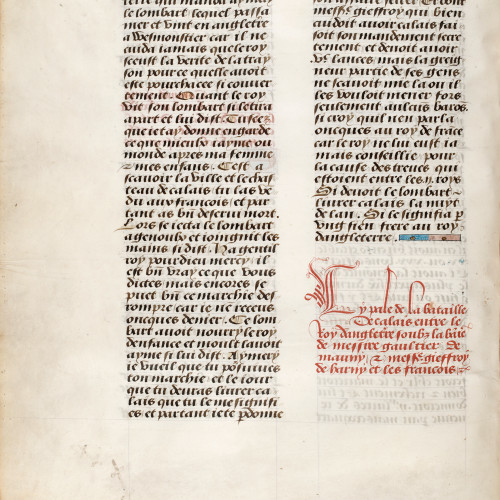 le lombart lequel passa la
mer et vint en angleterre
a Wesmoustier car il ne
cuida iamais que le roy
sceust la verite de la tray
son pource quelle auoit
este pourchacee si couuer
tement. Quant le roy
vit son lombart si le tira
a part et lui dist. Tu scez
que ie tay donne en garde
ce que mieulx iayme ou
monde apres ma femme
et mes enfans. Cest a
scauoir la ville et le chas
teau de calais tu las ven
du aux francois et par
tant as bn deserui mort.
Lors se iecta le lombart
a genoulx et ioingnit les
mains si dist. Ha gentil
roy pour dieu mercy il
est bn vray ce que vous
dictes mais encores se
puet bn ce marchie des
rompre car ie ne receus
oncques denier. Ce lom
bart auoit nourry le roy
denfance et moult lauoit
ayme si lui dist. Aymery
ie vueil que tu poursuiues
ton marchie et le iour
que tu deuras liurer ca
lais que tu le me signifi
es et partant ie te pdonne
mess. gieffroy qui bien
cuidoit auoir calais fai
soit son mandement secre
tement et deuoit auoir
vc lances mais la greig
neur partie de ses gens
ne scauoit mie la ou il
les vouloit mener fors
seulement aulcuns barons
si croy quil nen parla
oncques au roy de frace
car le roy ne lui eust ia
mais conseillie pour
la cause des treues qui
estoient entre les ii roys
Si deuoit le lombart
liurer calais la nuyt
de lan. Si le signifia p
vng sien frere au roy
dangleterre.
Cy parle de la bataille
de calais entre le
Roy dangleterre soubz la bane
de messire gaultier de
mauny, et mess. gieffroy
de harny et les francois.